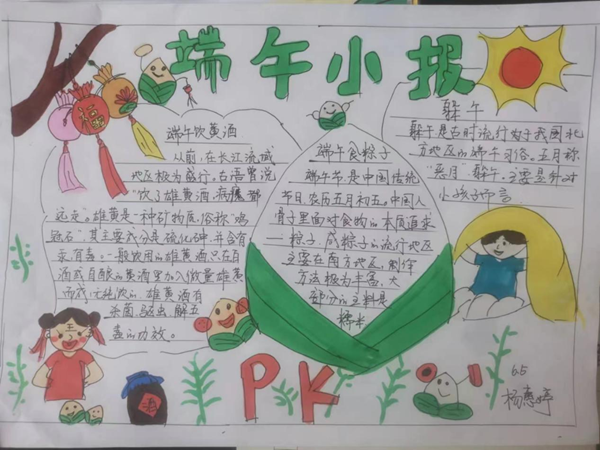 端午小报
福
端午饮黄酒
从前,在长江流域
地区极为盛行。古语曾说
"饮了雄黄酒,病魔都
远走"。雄黄是一种矿物质,俗称"鸡
冠石",其主要成分是硫化砷,并含有
汞,有毒。一般饮用的雄黄酒,只在白
酒或自酿的黄酒里加入微量雄黄
而成,无纯饮的。雄黄酒有
杀菌驱虫解五
毒的功效。
端午食粽子
端午节是中国传统
节日,农历五月初五。中国人
骨子里面对食物的本质追求
——粽子,咸粽子的流行地区
主要在南方地区,制作
方法极为丰富,大
部分的主料是
糯米
躲午
躲午是古时流行于我国北
方地区的端午习俗。五月称
"恶月",躲午,主要是针对
小孩子而言
酒
PK
6.5
杨惠婷